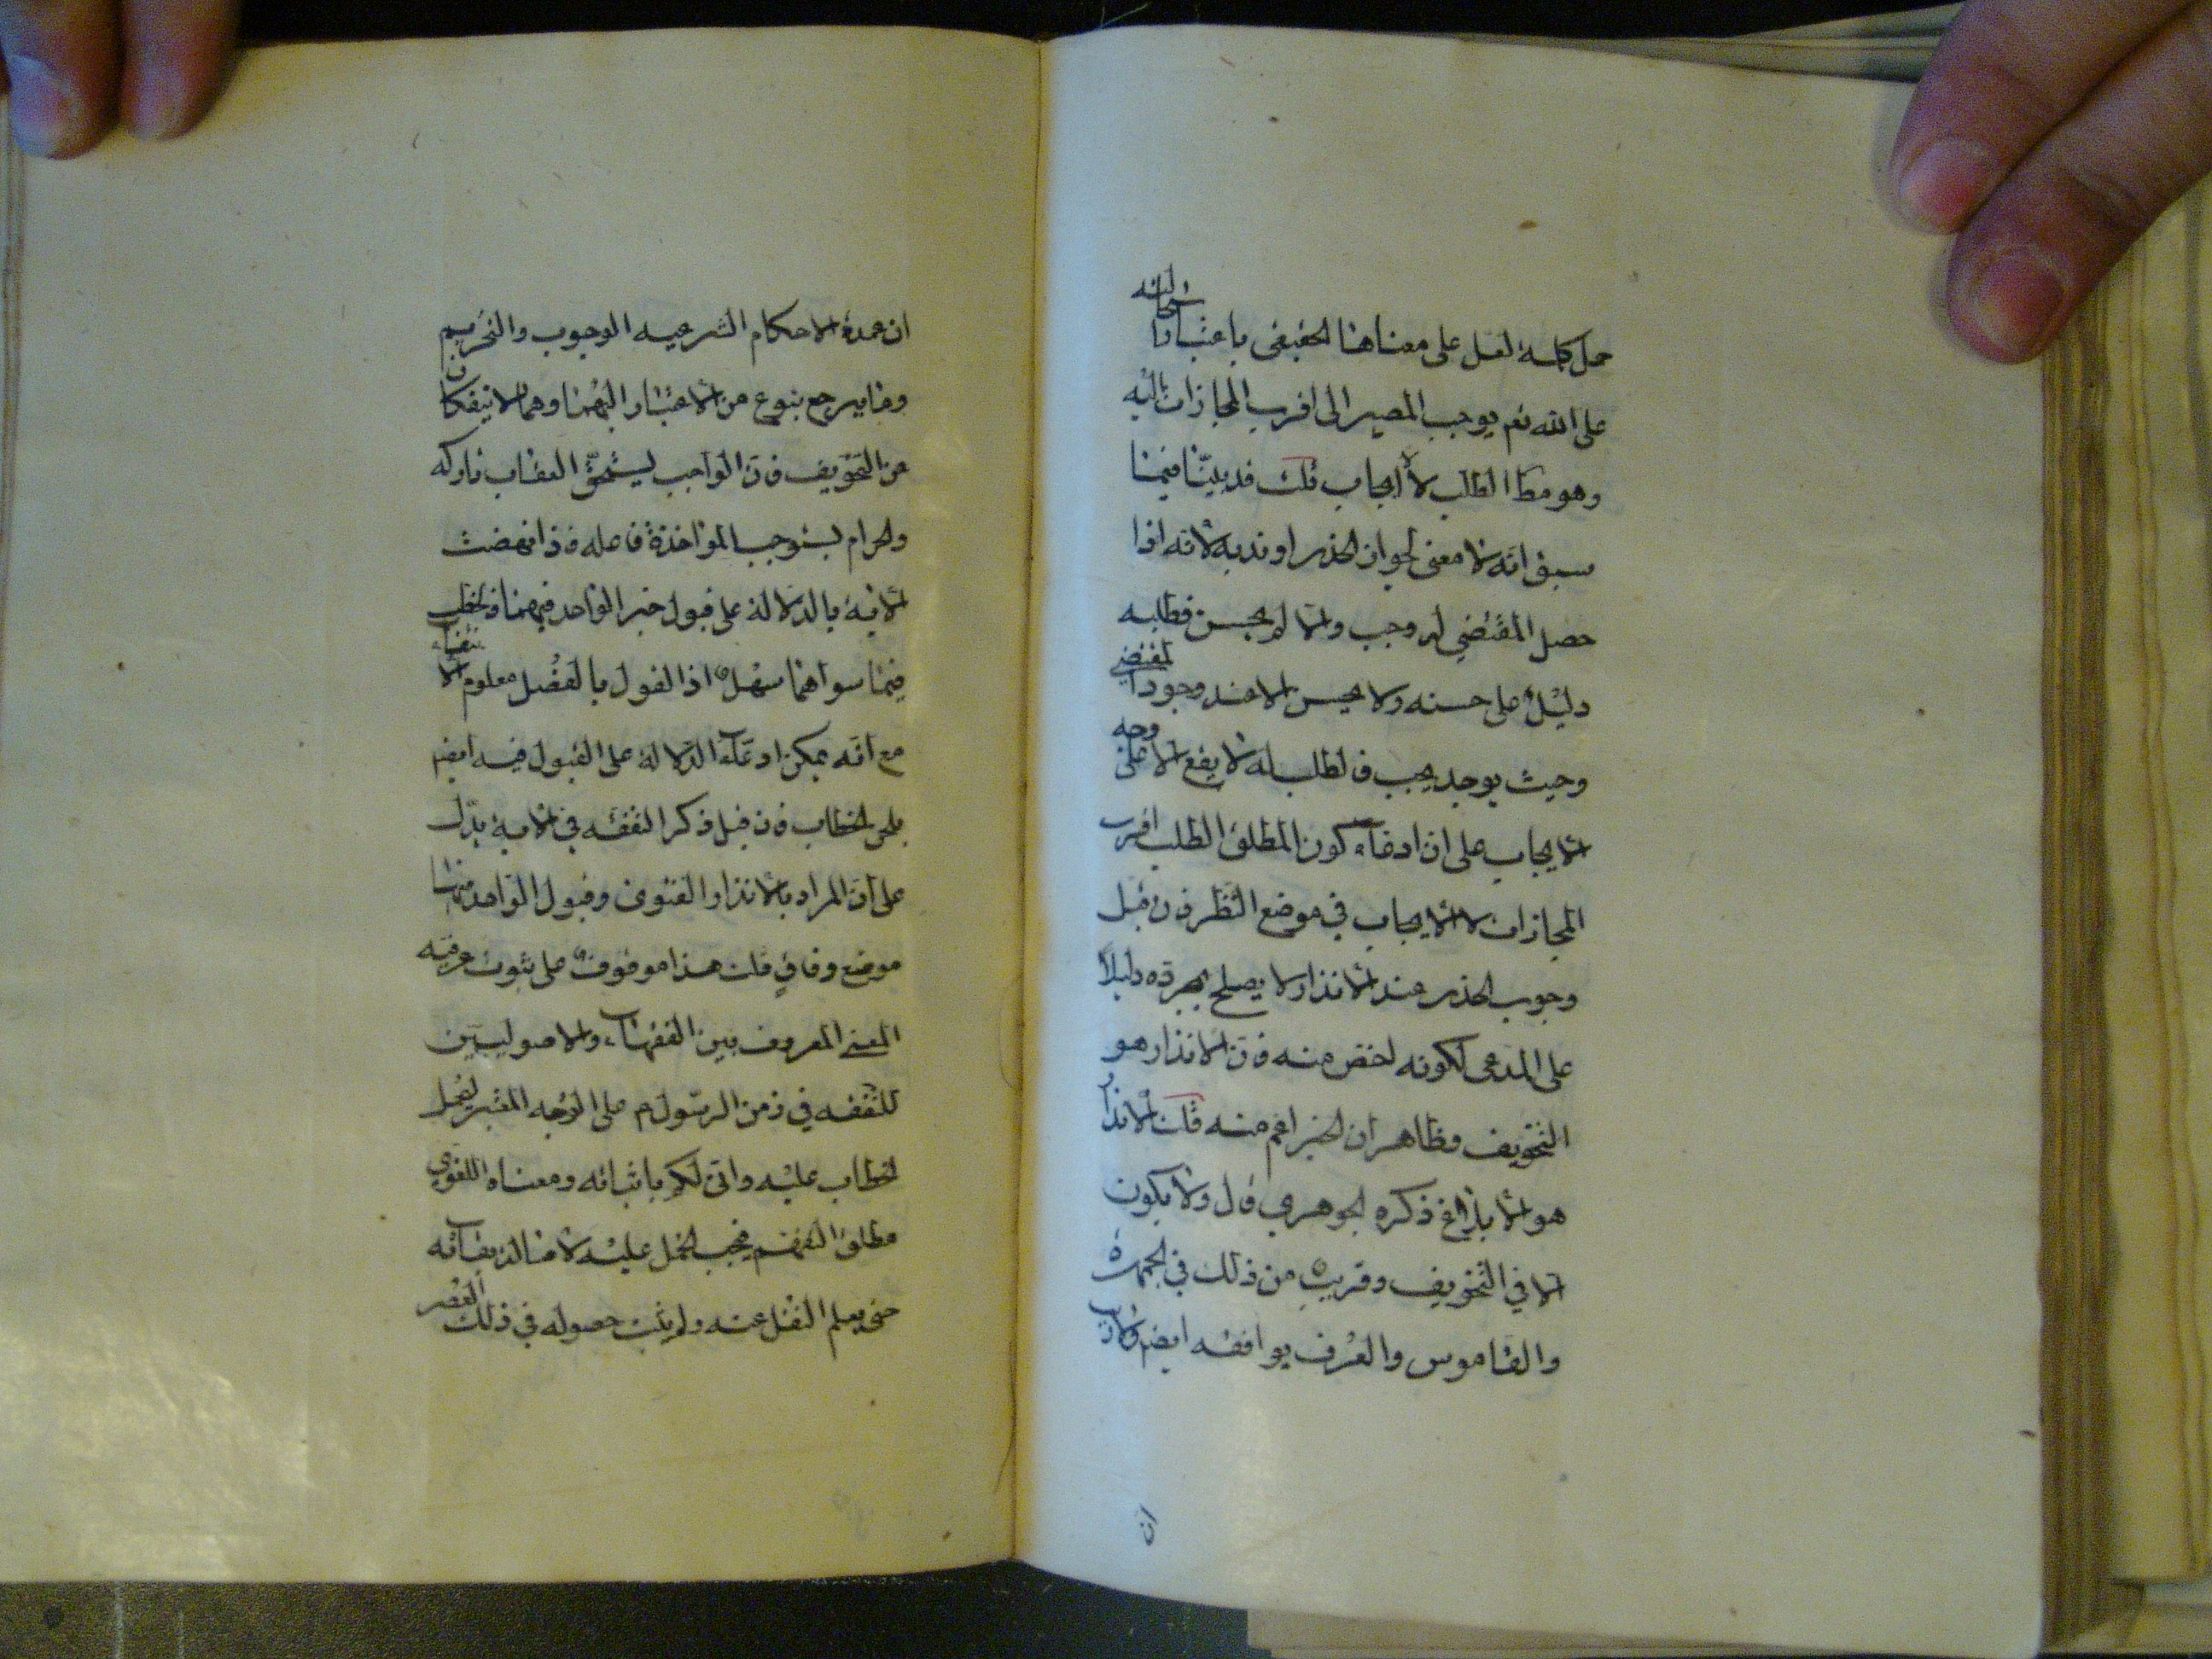 حمل كلمة لعل على معناها الحقيقى باعتبار استحالته
على الله تعم يوجب المصير الى اقرب المجازات اليه
وهو مط الطلب لا الايجاب قلت قد بيّنا فيما
سبق انّه لا معنى لجواز الحذر او ندبه لانّه اذا
حصل المقتضي له وجب والّا لم يحسن فطلبه
دليل على حسنه ولا يحسن الا عند وجود المقتضي
وحيث يوجد يجب فالطلب له لا يقع الا على وجه
الايجاب على ان ادعاء كون المطلق الطلب اقرب
المجازات لا الايجاب في موضع النظر فان قيل
وجوب الحذر عند الانذار لا يصلح بمجرده دليلا
على المدعى لكونه اخص منه فان الانذار هو
التخويف وظاهر ان الخبر اعم منه قلت الانذار
هو الابلاغ ذكره الجوهري قال ولا يكون
الا في التخويف وقريب من ذلك في الجمهرة
والقاموس والعرف يوافقه ايضم ولا ريب
ان
ان عمدة الاحكام الشرعيه الوجوب والتحريم
وما يرجع بنوع من الاعتبار اليهما وهما لا ينفكان
عن التخويف فان الواجب يستحق العقاب تاركه
والحرام يستوجب المؤاخذة فاعله فاذا نهضت
الاية بالدلالة على قبول خبر الواحد فيهما فالخطب
فيما سواهما سهل اذ القول بالفصل معلوم الانتفاء
مع انّه يمكن ادعاء الدلالة على القبول فيه ايضم
بلحن الخطاب فان قيل ذكر التفقه في الاية يدل
على ان المراد بالانذار الفتوى وقبول الواحد فيها
موضع وفاق قلت هذا موقوف على ثبوت عرفيه
المعنى المعروف بين الفقهاء والاصوليين
للتفقه في زمن الرسول م على الوجه المعتبر ليحمل
الخطاب عليه وانى لكم باثباته ومعناه اللغوي
مطلق التفهم فيجب الحمل عليه لاصالة بقائه
حتى يعلم النقل عنه ولم يثبت حصوله في ذلك العصر